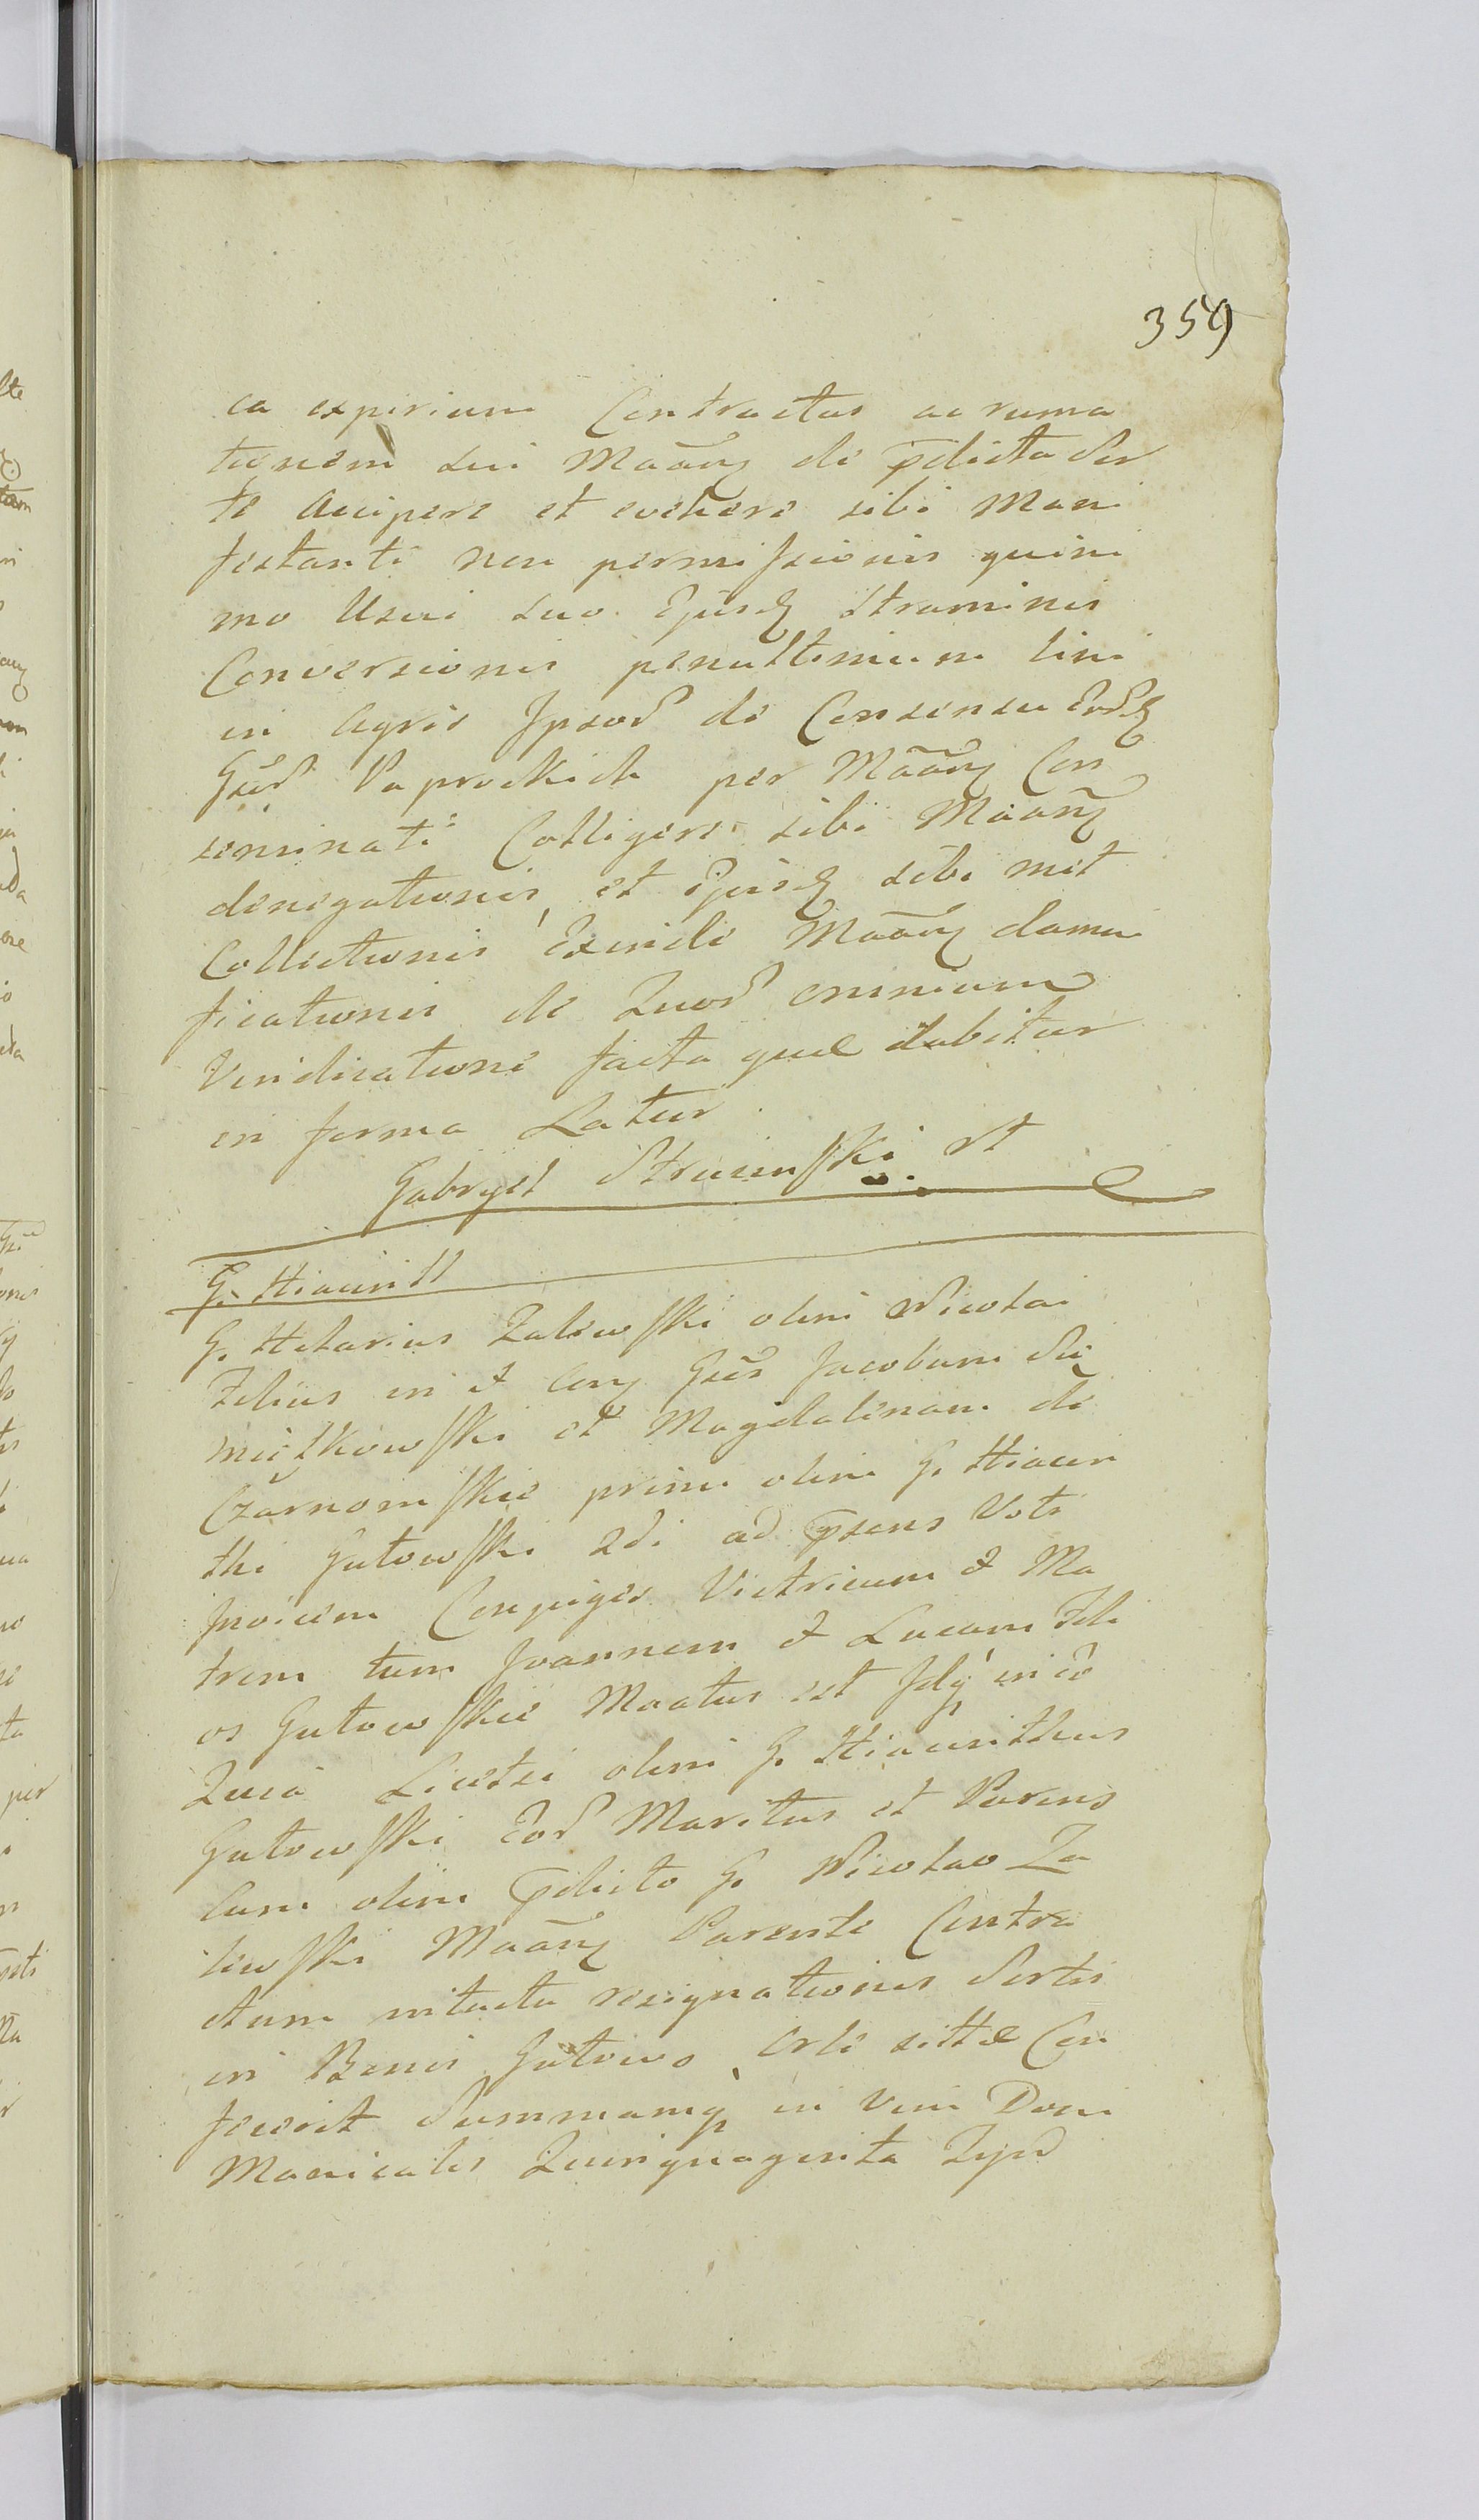 359
ca expirium Contractus ac ruma
tionem sui Maãnŋ de p̃dicta Sor
te accipere et evehere sibi Mani
festanti non permissionis quini
mo Usui suo Ejusdꝫ Straminis
Conversionis penultimum lini
in Agris Ipsoȓ de Consensu Eoȓdꝫ
Gsoȓ Paprockich per Mãanŋ Con
seminati Colligere sibi Maanŋ
denegationis, et Ejusdꝫ sibi met
Collectionis Exinde Maãnŋ damni
ficationis de Quoȓ omnium
Vindicatione facta quæ dabitur
in forma Latur
Gabryel Strumſki Rt
G. Hiacinth
G. Hilarius Zalewſki olim Nicolai
Filius in et Conŋ Gsos Jacobum Sie
miątkowſki et Magdalenam de
Czarnomſkie primi olim G. Hiacin
thi Gutowſki 2di ad p̃sens Voti
Invicem Conjuges Victricum et Ma
trem tum Joannem et Lucam Fili
os Gutowſkie Maatus est Idqꝫ in eo
Quia Licet olim G. Hiacinthus
Gutowſki Eoȓ Maritus et Parens
Cum olim p̃dicto G. Nicolao Za
lewſki Maãnŋ Parente Contra
ctum intuitu resignationis Sortis
in Bonis Gutowo Orle sittæ Con
fecerit Summamqꝫ in Vim Domi
Manicalis Quinquaginta Typoȓ